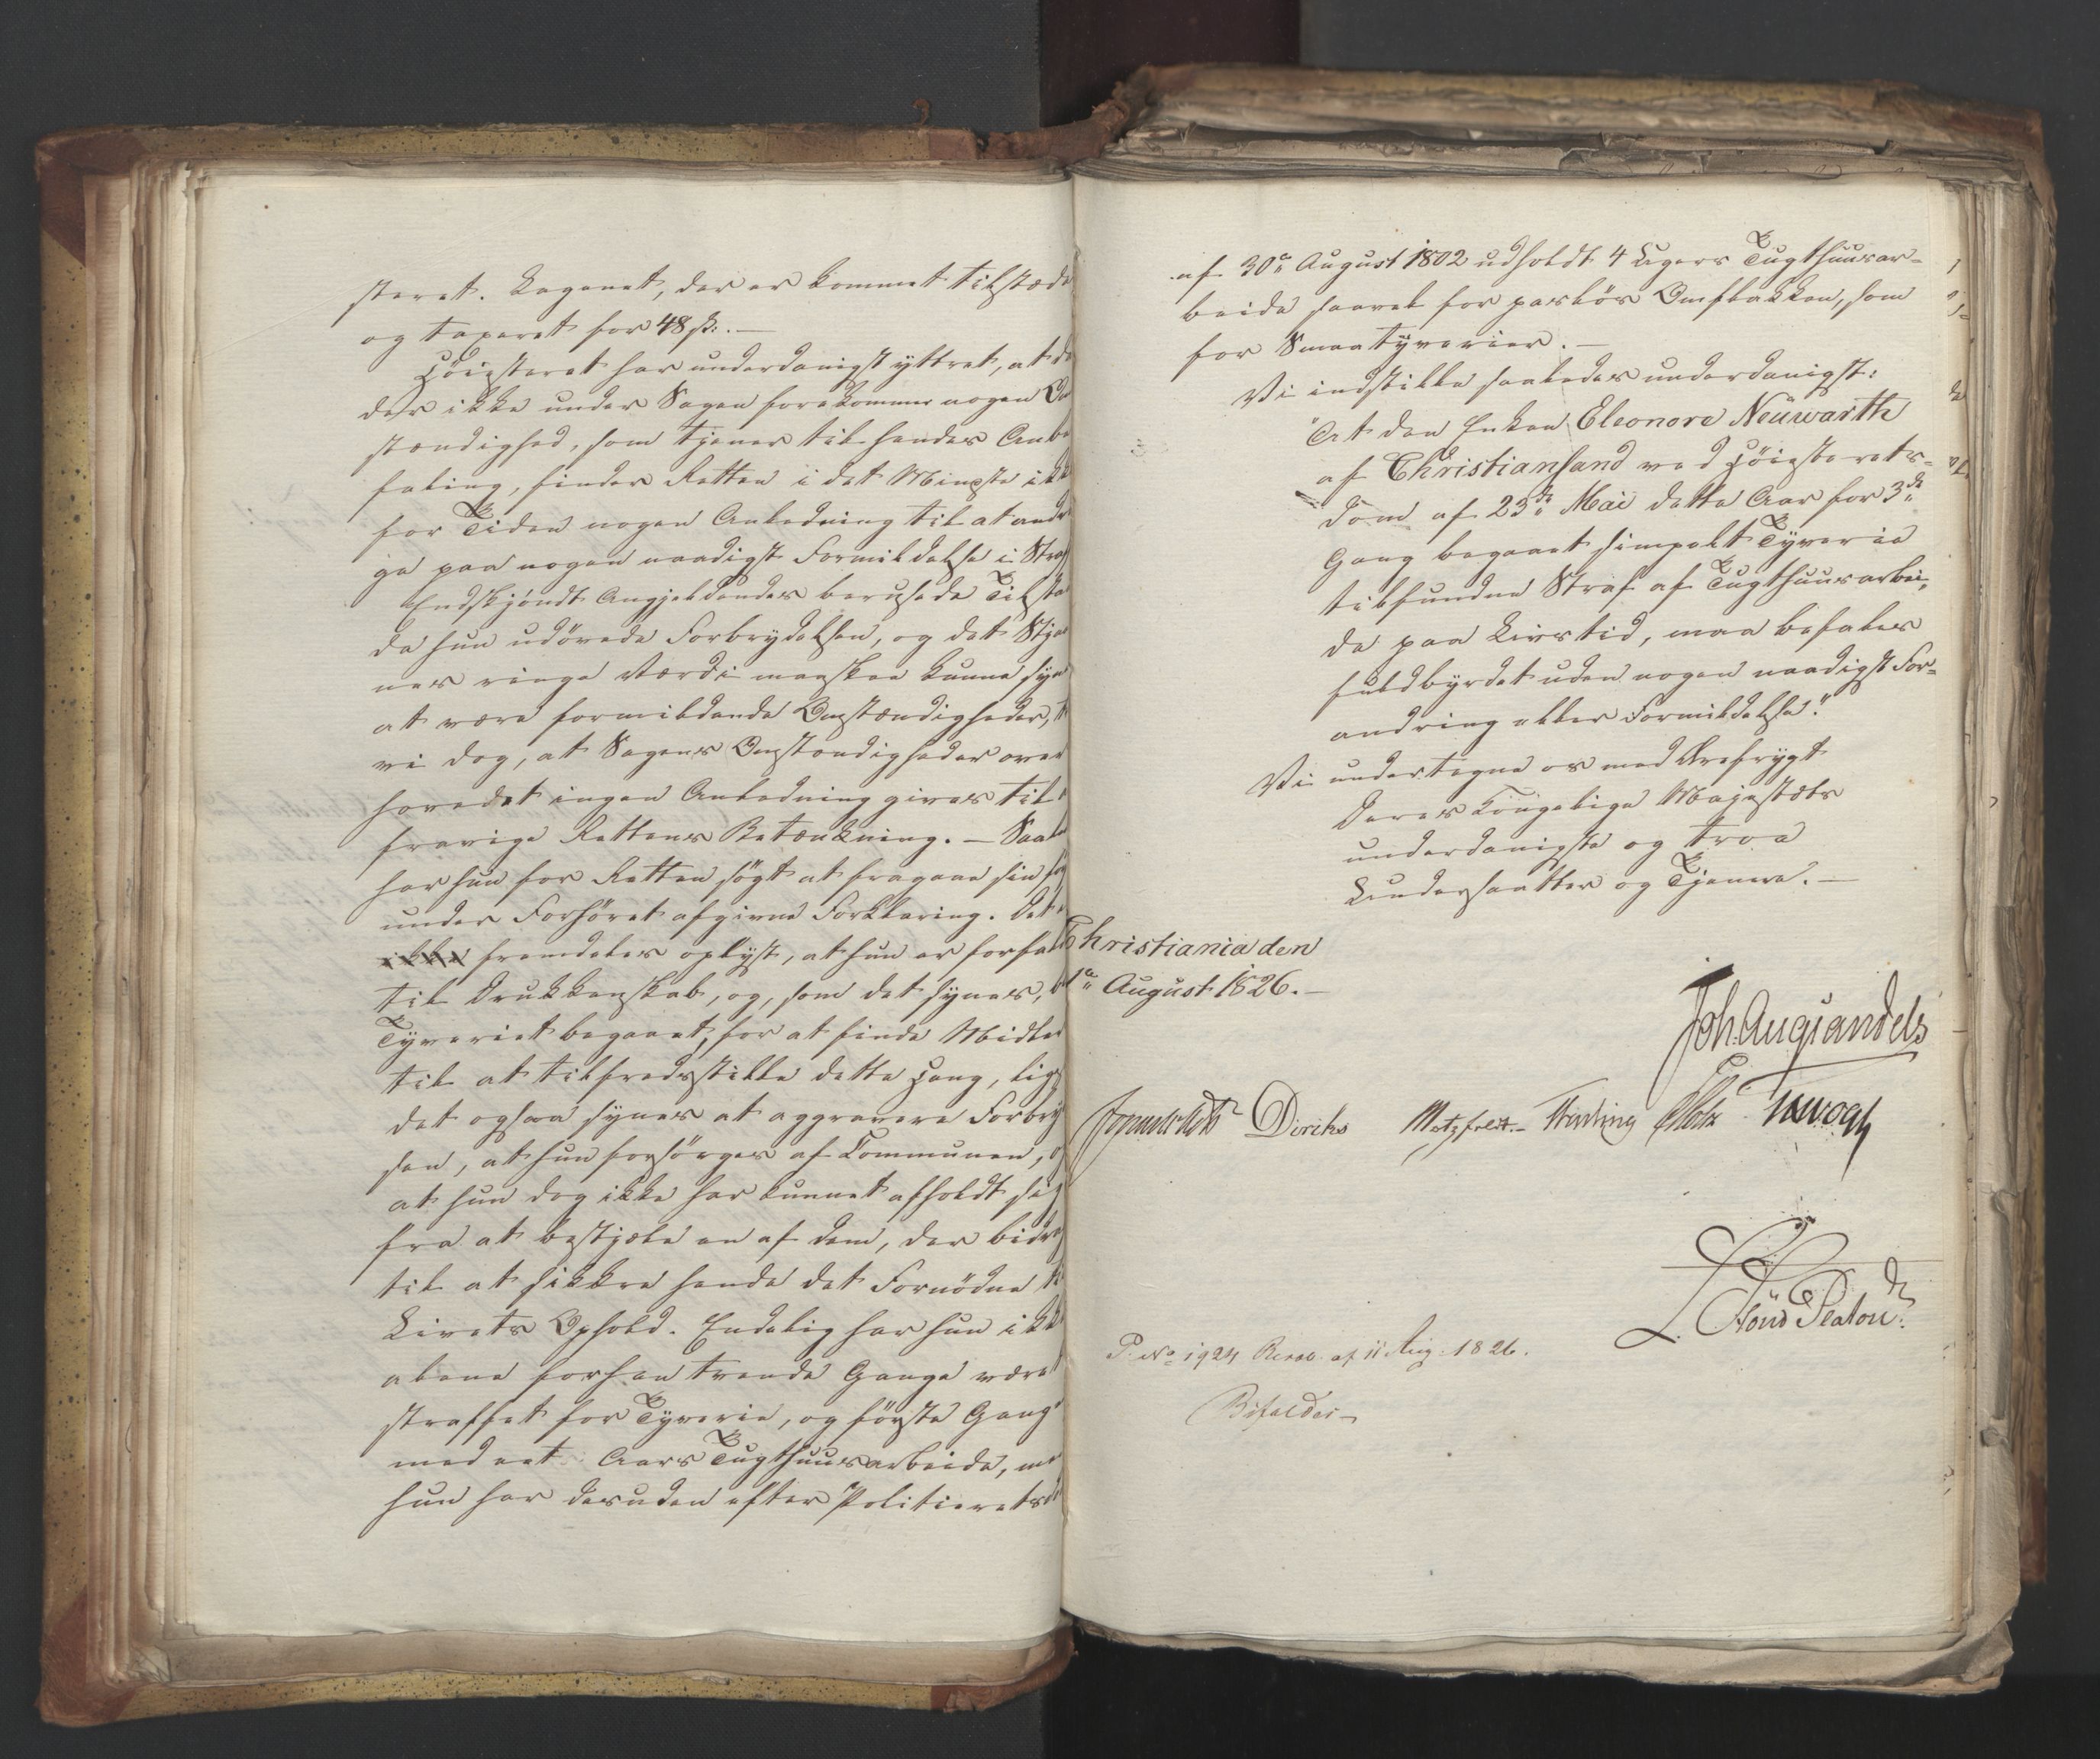 steret. Laganet, der er kommet tilstæde
og taxeret for 48 ß. —
Høiesteret har underdanigst yttret, at da
der ikke under Sagen forekommer nogen Om
stændighed, som tjener til hendes Anbe
faling, finder Retten i det Mindste ikke
for Tiden nogen Anledning til at andra
ge paa nogen naadigst Formildelse i Straf
Endskjöndt Angjeldendes berusede Tilsta
da hun udövede Forbrydelsen, og det Stjaal
nes ringe Værdi maaskee kunne synes
at være formildende Omstændigheder,
vi dog, at Sagens Omstændigheder over
hovedet ingen Anledning gives til
fravige Rettens Betænkning. — Saale
har hun for Retten sögt at fragaae sin
under Forhöret afgivne Forklaring. Det
fremdeles oplyst, at hun er forfalden
til Drukkenskab, og, som det synes,
Tyveriet begaaet, for at finde Midler
til at tilfredsstille dette Hang, lige
det ogsaa synes at aggravere Forbry
sen, at hun forsörges af Communen, og
at hun dog ikke har kunnet afholdt sig
fra at bestjæle en af dem, der bidrog
til at sikkre hende det Fornödne til
Livets Ophold. Endelig har hun ikke
alene forhen trende Gange været
straffet for Tyverie, og förste Gang
med eet Aars Tugthuusarbeide, men
hun har desuden efter Politieretsdom
af 30te August 1802 udholdt 4 Ugers Tugthuusar-
beide saavel for Omflakken, som
for Smaatyverier. —
Vi indstille saaledes underdanigst:
"At den Enken Eleonore Neuwarth
af Christiansand ved Höiesterets-
dom af 23de Mai dette Aar for 3de
Gang begaaet simpelt Tyverie
tilfundne Straf af Tugthuusarbei-
de paa Livstid, maa befales
fuldbyrdet uden nogen naadigst For-
andring eller Formildelse."
Vi undertegne os med Ærefrygt
Deres Kongelige Majestæts
underdanigste og troe
Undersaatter og Tjenere. —
Christiania den
1te August 1826. —
Joh. Aug Sandels
Diriks Motzfeldt. Holst
P. No 1924 Resol. af 11 Aug: 1826.
Bifaldes